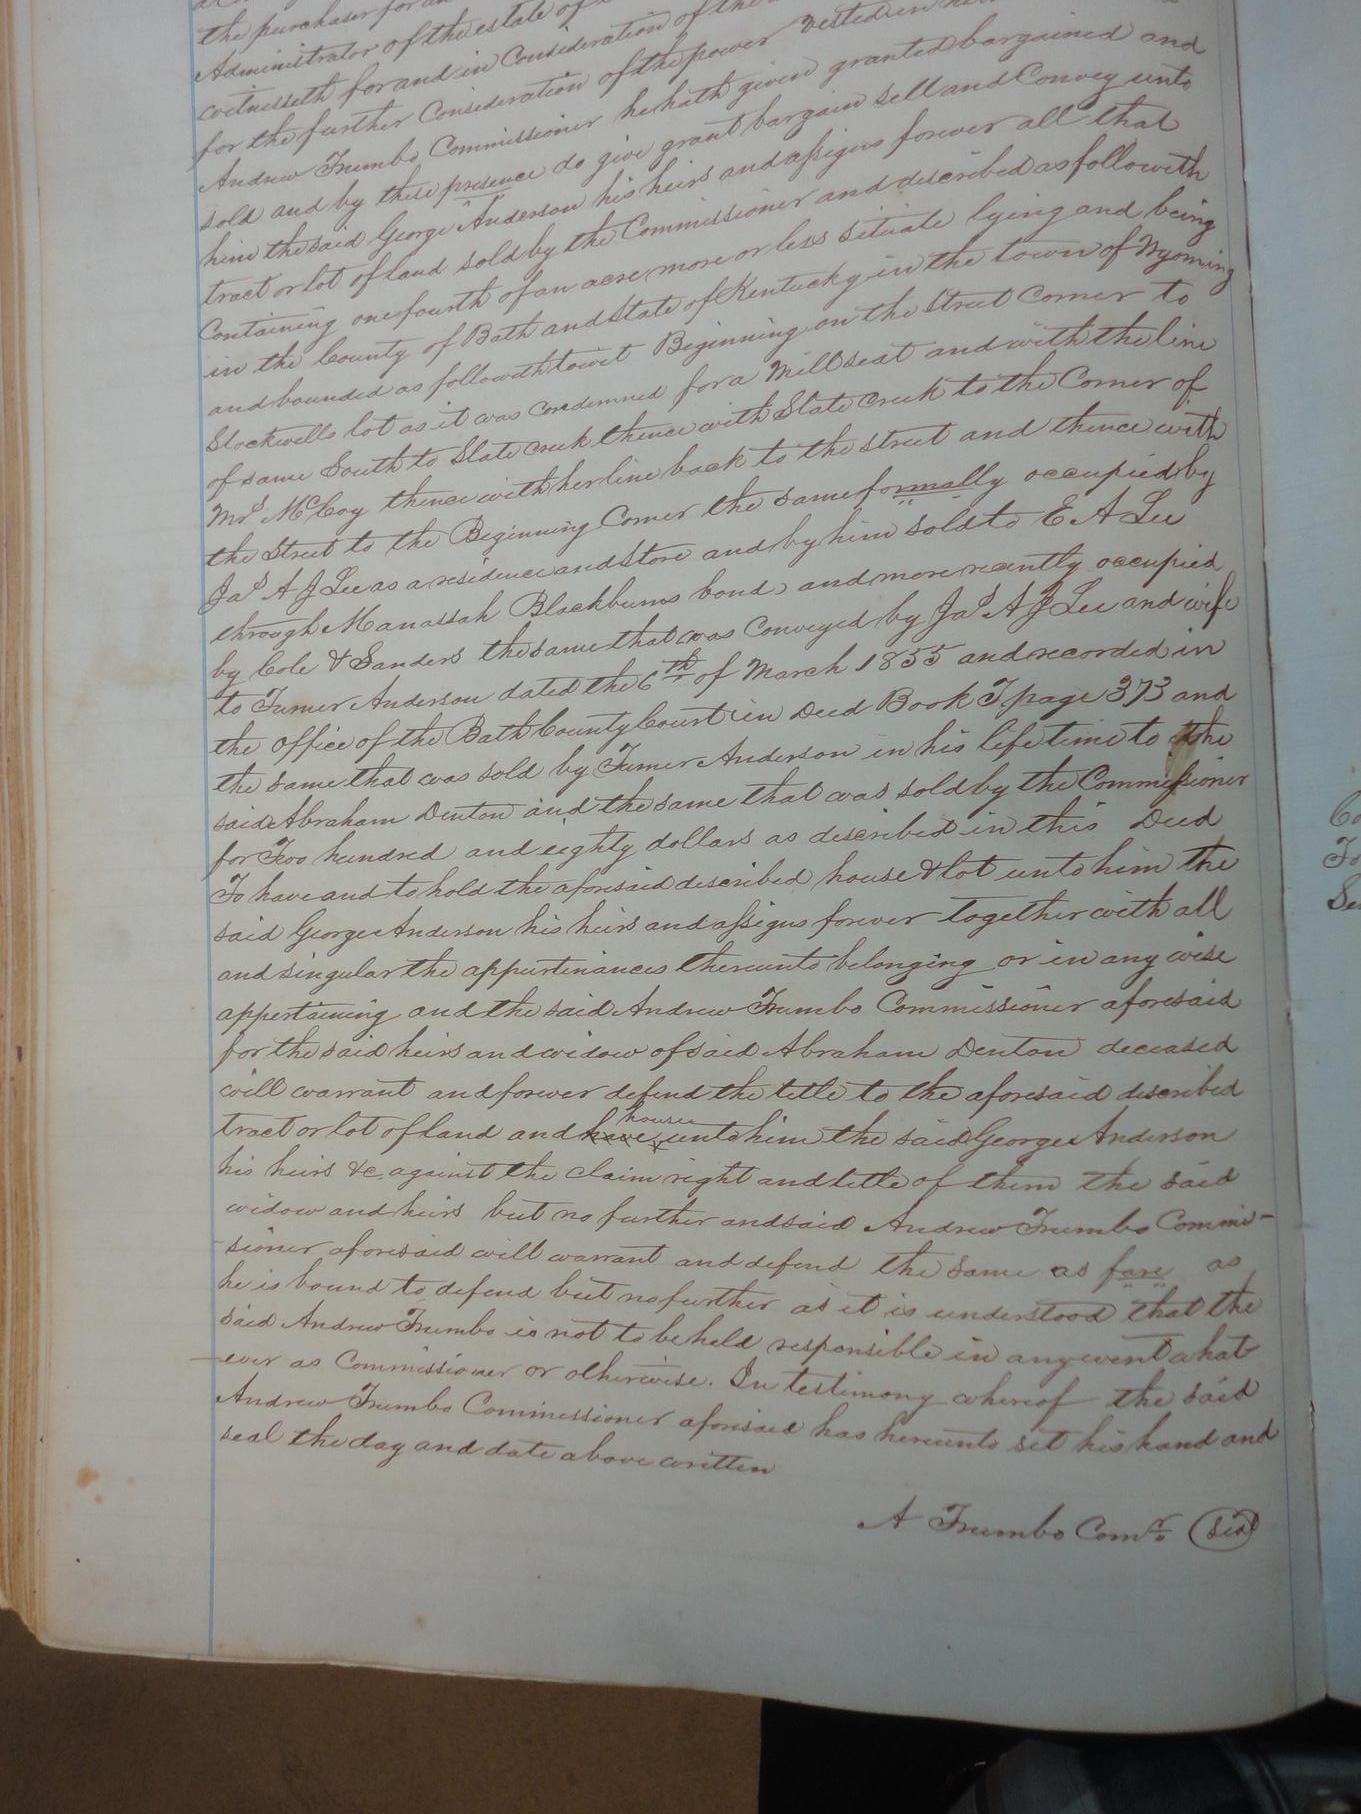 the purchaser for an
Administrator of the estate of
witnesseth for and in Consideration of the
for the further Consideration of the power vested in
Andrew Trumbo Commissioner he hath given granted bargained and
sold and by these presence do give grant bargain sell and Convey unto
him the said George Anderson his heirs and assigns forever all that
tract or lot of land sold by the Commissioner and described as followeth
Containing one fourth of an acre more or less situate lying and being
in the County of Bath and State of Kentucky in the town of Wyoming
and bounded as followeth towit Beginning on the Street Corner to
Stockwells lot as it was condemned for a Mill seat and with the line
of same South to Slate creek thence with Slate Creek to the Corner of
Mrs McCoy thence with her line back to the street and thence with
the Street to the Beginning Corner the same formally occupied by
Jas A J Lee as a residence and Store and by him sold to E A Lee
through Manassah Blackburns bond and more recently occupied
by Cole & Sanders the same that was Conveyed by Jas A J Lee and wife
to Turner Anderson dated the 6th of March 1855 and recorded in
the office of the Bath County Court in Deed Book T page 373 and
the same that was sold by Turner Anderson in his life time to the
said Abraham Denton and the same that was sold by the Commissioner
for Two hundred and eighty dollars as described in this Deed
To have and to hold the aforesaid described house & lot unto him the
said George Anderson his heirs and assigns forever together with all
and singular the appurtinances thereunto belonging or in any wise
appertaining and the said Andrew Trumbo Commissioner aforesaid
for the said heirs and widow of said Abraham Denton deceased
will warrant and forever defend the title to the aforesaid described
house
tract or lot of land and have unto him the said George Anderson
his heirs &c against the claim right and title of them the said
widow and heirs but no further and said Andrew Trumbo Commis-
sioner aforesaid will warrant and defend the same as fare as
he is bound to defend but no further as it is understood that the
said Andrew Trumbo is not to be held responsible in any event what
ever as Commissioner or otherwise. In testimony whereof the said
Andrew Trumbo Commissioner aforesaid has hereunto set his hand and
seal the day and date above written
A Trumbo Comr Seal